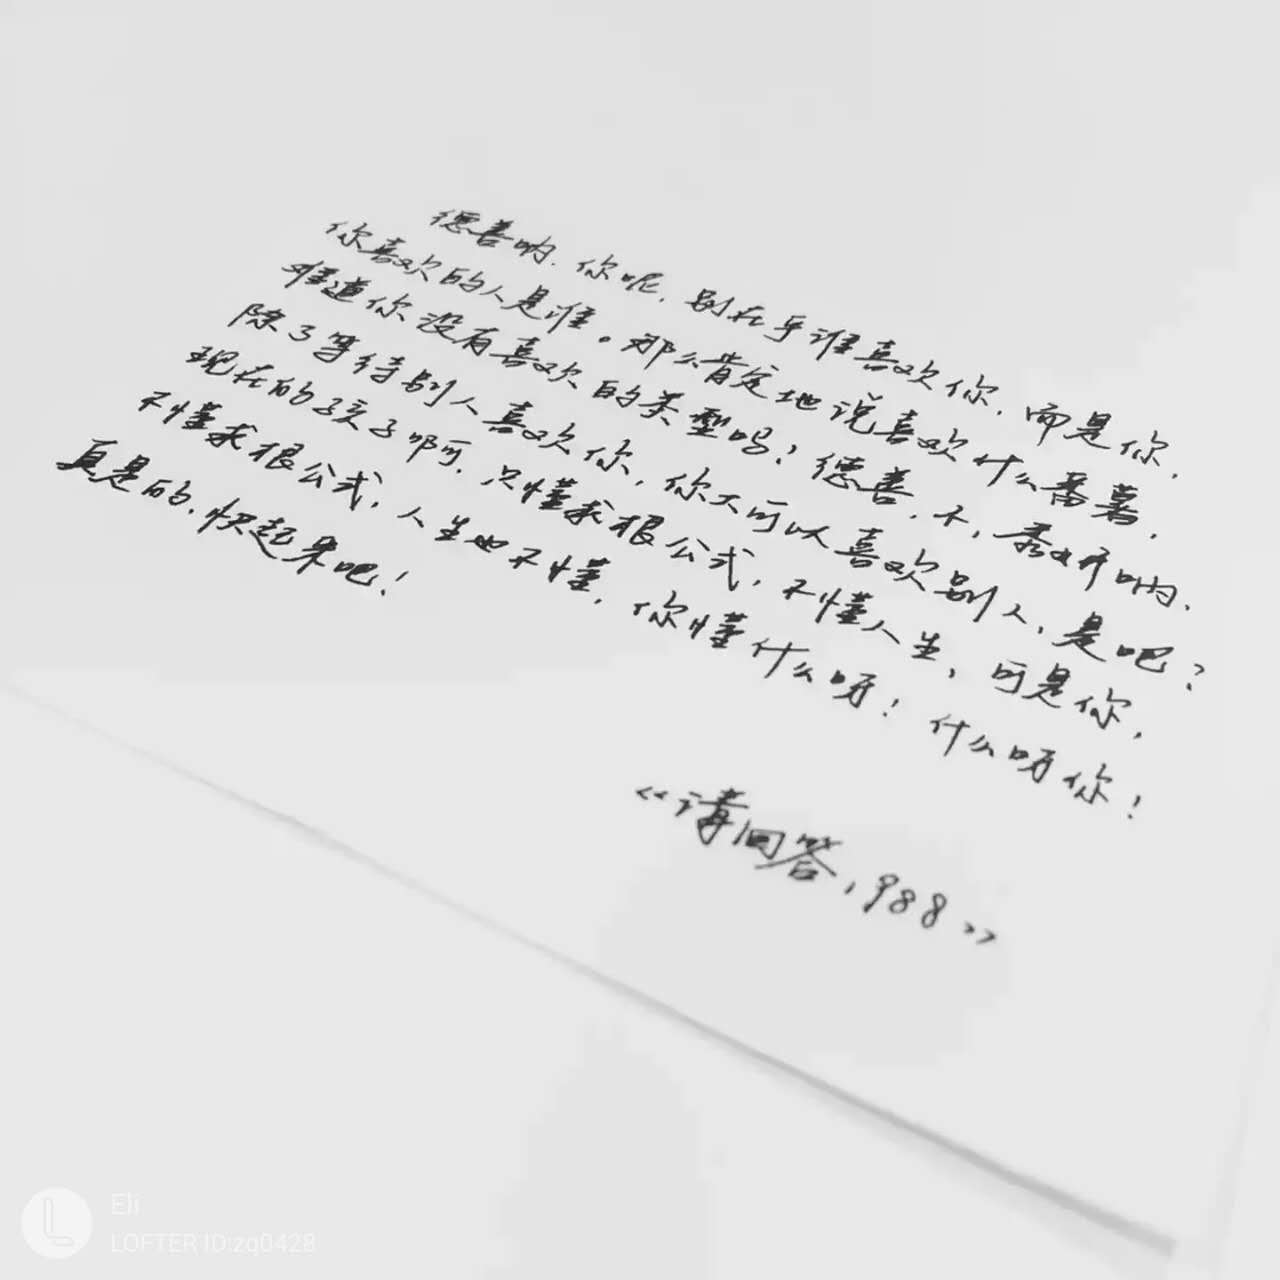 德善呐.你呢,别在乎谁喜欢你.而是你,
你喜欢的人是谁。那么肯定地说喜欢什么番薯,
难道你没有喜欢的类型吗?德善,不,秀妍呐.
除了等待别人喜欢你,你不可以喜欢别人,是吧?
现在的孩子啊.只懂求根公式,不懂人生,可是你,
不懂求根公式,人生也不懂.你懂什么呀!什么呀你!
真是的.快起来吧!
《请回答1988》
Eli
LOFTER ID:zq0428